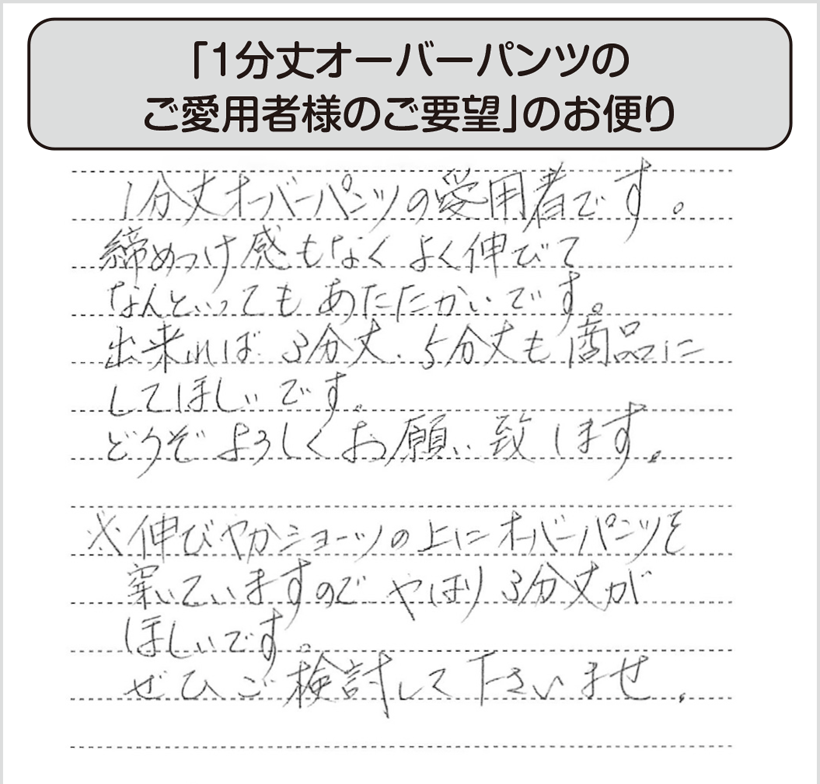 「1分丈オーバーパンツの
ご愛用者様のご要望」のお便り
1分丈オーバーパンツの愛用者です。
締めつけ感もなくよく伸びて
なんといってもあたたかいです。
出来れば3分丈、5分丈も商品に
してほしいです。
どうぞよろしくお願い致します。
※伸びやかショーツの上にオーバーパンツを
穿いていますのでやはり3分丈が
ほしいです。
ぜひご検討して下さいませ。